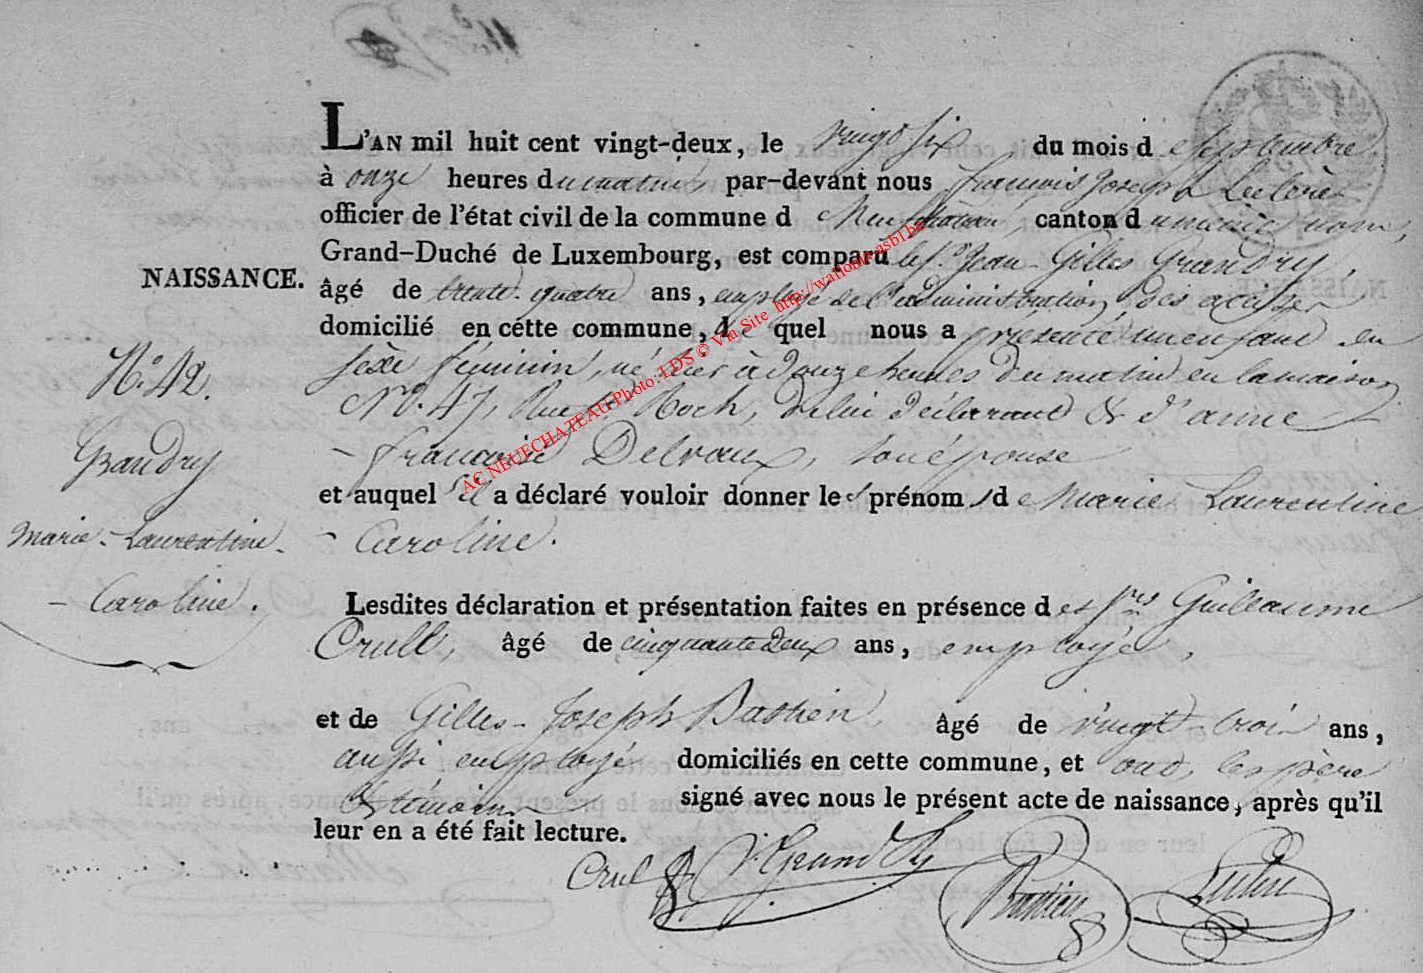 L'AN mil huit cent vingt-deux, le vingt six du mois de Septembre
à onze heures du matin par-devant nous françois Joseph Leclère
officier de l'état civil de la commune de Neufchateau, canton du même nom,
Grand-Duché de Luxembourg, est comparu le Sr. Jean-Gilles Grandry,
NAISSANCE.
âgé de trente-quatre ans, employé de l'administration des accises
domicilié en cette commune, lequel nous a présenté un enfant du
No. 42.
sexe féminin, né hier à onze heures du matin en la maison
No. 47, Rue St. Roch, de lui déclarant & d'anne
Grandry
- françoise Delvaux, son épouse
et auquel il a déclaré vouloir donner les prénoms de Marie Laurentine
Marie-Laurentine-
- Caroline.
- Caroline.
Lesdites déclaration et présentation faites en présence des Srs Guillaume
Crull, âgé de cinquante deux ans, employé,
et de Gilles-Joseph Bastien, âgé de vingt-trois ans,
aussi employé domiciliés en cette commune, et ont, les père
& témoins signé avec nous le présent acte de naissance, après qu'il
leur en a été fait lecture.
Crull
J. Grandry
Bastien
Leclère
AC NEUFCHATEAU Photo: LDS © Via Site http://wallonia-asbl.be